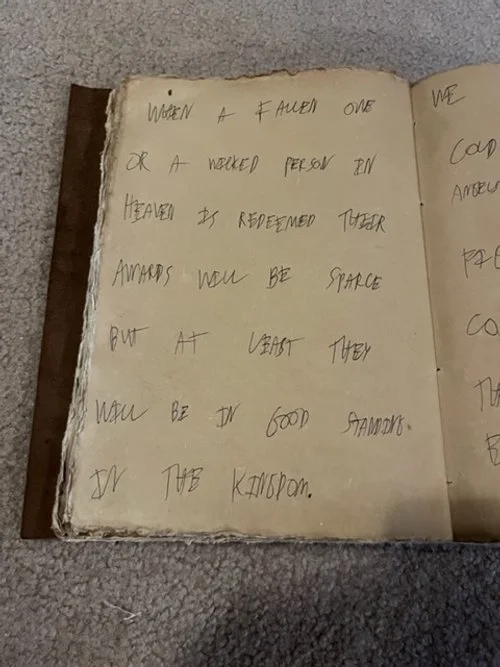 WHEN A FALLEN ONE
OR A WICKED PERSON IN
HEAVEN IS REDEEMED THEIR
AWARDS WILL BE SPARCE
BUT AT LEAST THEY
WILL BE IN GOOD STANDING
IN THE KINGDOM.
WE
COLD